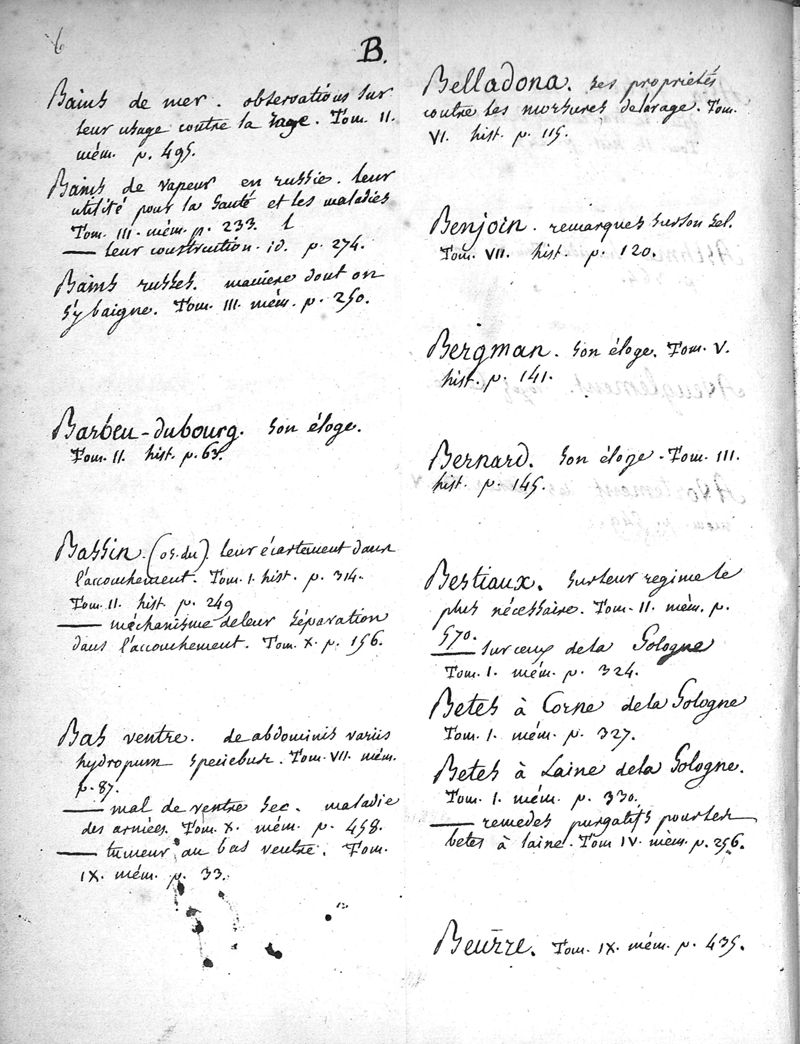 6
B.
Bains de mer. observations sur
leur usage contre la rage. Tom. II.
mém. p. 495.
Bains de vapeur en russie. leur
utilité pour la santé et les maladies
Tom. III. mém. p. 233.
— leur construction. id. p. 274.
Bains russes. maniere dont on
s'y baigne. Tom. III. mém. p. 250.
Barbeu-dubourg. son éloge.
Tom. II. hist. p. 63.
Bassin. (os. du). leur écartement dans
l'accouchement. Tom. I. hist. p. 314.
Tom. II. hist. p. 249
— méchanisme de leur séparation
dans l'accouchement. Tom. X. p. 156.
Bas ventre. de abdominis variis
hydropum speciebus. Tom. VII. mém.
p. 87.
— mal de ventre sec. maladie
des armées. Tom. X. mém. p. 458.
— tumeur au bas ventre. Tom.
IX. mém. p. 33.
Belladona. ses proprietés
contre les morsures de la rage. Tom.
VI. hist. p. 115.
Benjoin. remarques sur son sel.
Tom. VII. hist. p. 120.
Bergman. son éloge. Tom. V.
hist. p. 141.
Bernard. son éloge. Tom. III.
hist. p. 145.
Bestiaux. sur leur regime le
plus nécessaire. Tom. II. mém. p.
570.
— sur ceux de la Sologne
Tom. I. mém. p. 324.
Betes à Corne de la Sologne
Tom. I. mém. p. 327.
Betes à Laine de la Sologne.
Tom. I. mém. p. 330.
— remedes purgatifs pour les
betes à laine. Tom IV. mém. p. 256.
Beurre. Tom. IX. mém. p. 435.